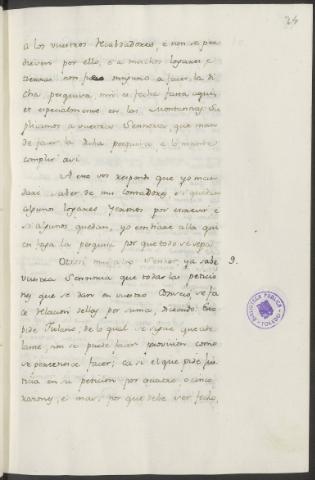 24
a los vuestros Recabdadores, e non se pue
dieron por ello, e a muchos logares e
tierras non fué ninguno a facer la di
cha pesquisa, nin se fecha fasta aqui,
et especialmente en las Montannas. Su
plicamos a vuestra Sennoria, que man
de facer la dicha pesquisa, e lo mande
complir asi.
A este vos respondo que yo man
daré saber de mis contadores, si quedan
algunos logares Yermos por
si algunos quedan, yo enbiaré alla qui
en faga la pesquisa por que todo se sepa.
Otrosi mui alto Sennor, ya sabe 9.
vuestra Sennoria que todas las peticio
nes que se dan en vuestro Consejo, se fa
ce relacion dellas por suma, diciendo: Esto
pide Fulano, de lo qual se sigue que
non se puede facer provision como
se pertenesce facer, ca si el que pide jus
ticia en su peticion por quatro o cinco
rasones, et mas, por que debe ser fecho,
BIBLIOTECA PÚBLICA
TOLEDO